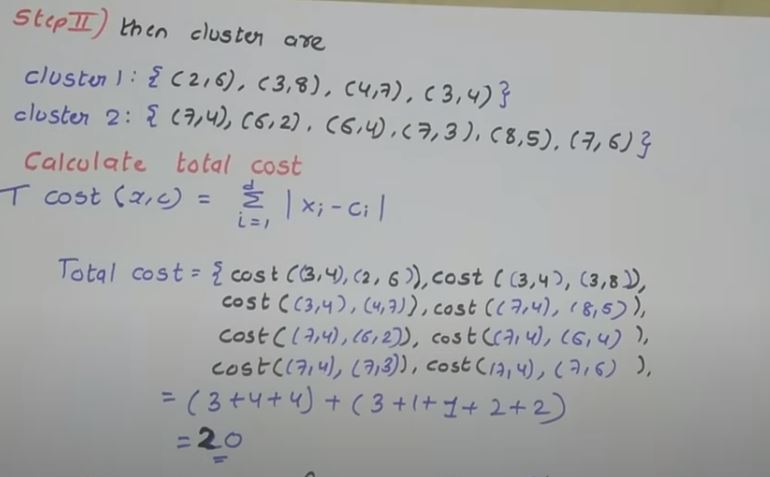 Step II) then cluster are
cluster 1: { (2,6), (3,8), (4,7), (3,4) }
cluster 2: { (7,4), (6,2), (6,4), (7,3), (8,5), (7,6) }
Calculate total cost
T cost (x,c) = d Σ i=1 |xi - ci|
Total cost = { cost ((3,4), (2,6)), cost ((3,4), (3,8)),
cost ((3,4), (4,7)), cost ((7,4), (8,5)),
cost ((7,4), (6,2)), cost ((7,4), (6,4)),
cost ((7,4), (7,3)), cost (7,4), (7,6) ),
= (3+4+4) + (3+1+1+2+2)
= 20